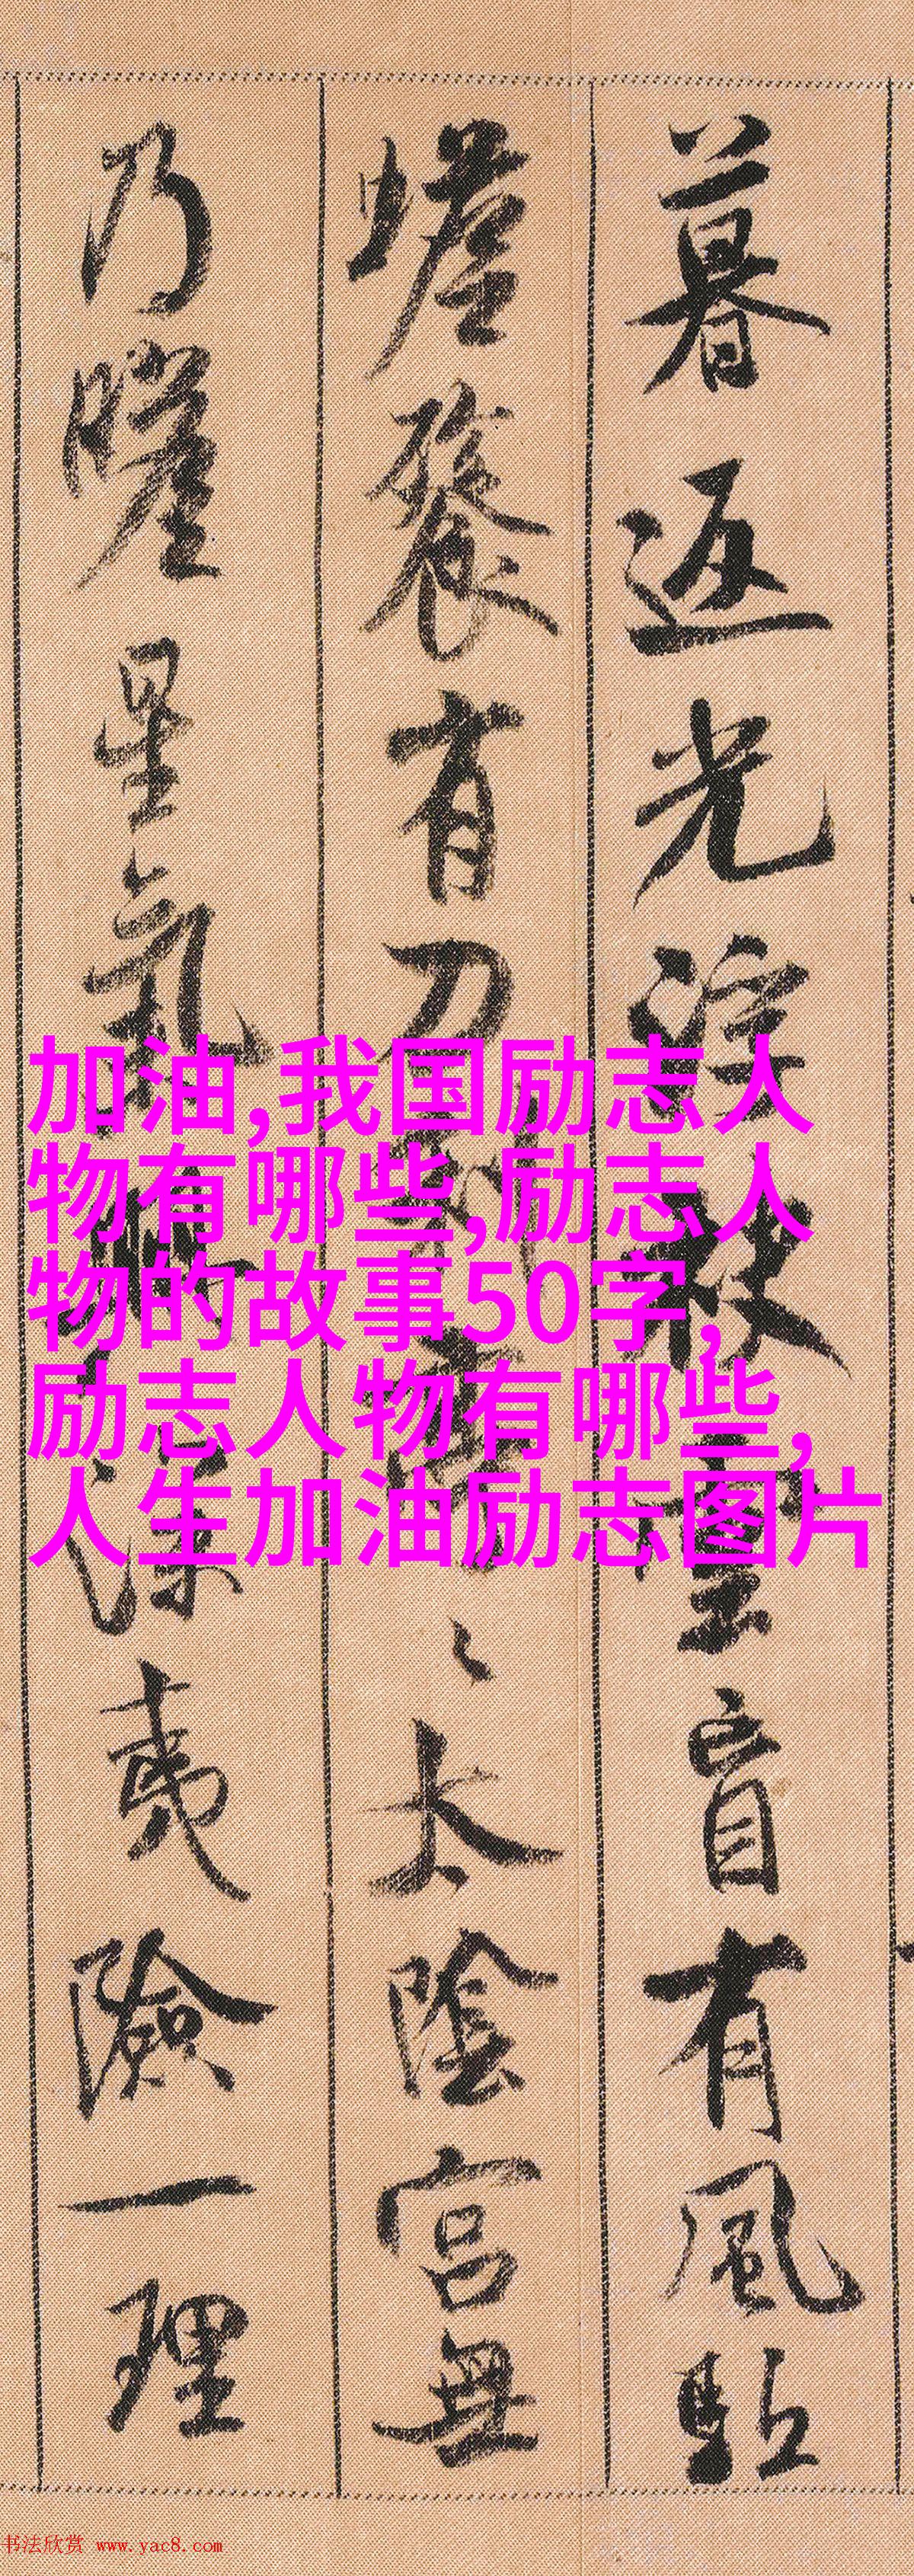 暮返光盲有風點
有刀太陰宮無
乃星氣夷險一理
加油,我国励志人
物有哪些,励志人
物的故事50字,
励志人物有哪些,
人生加油励志图片
书法欣赏 www.yac8.com